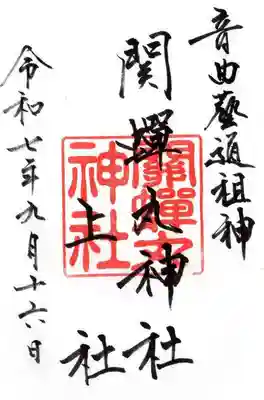 音曲藝道祖神
関蝉丸神社
上社
令和七年九月十六日
關蟬丸
神社